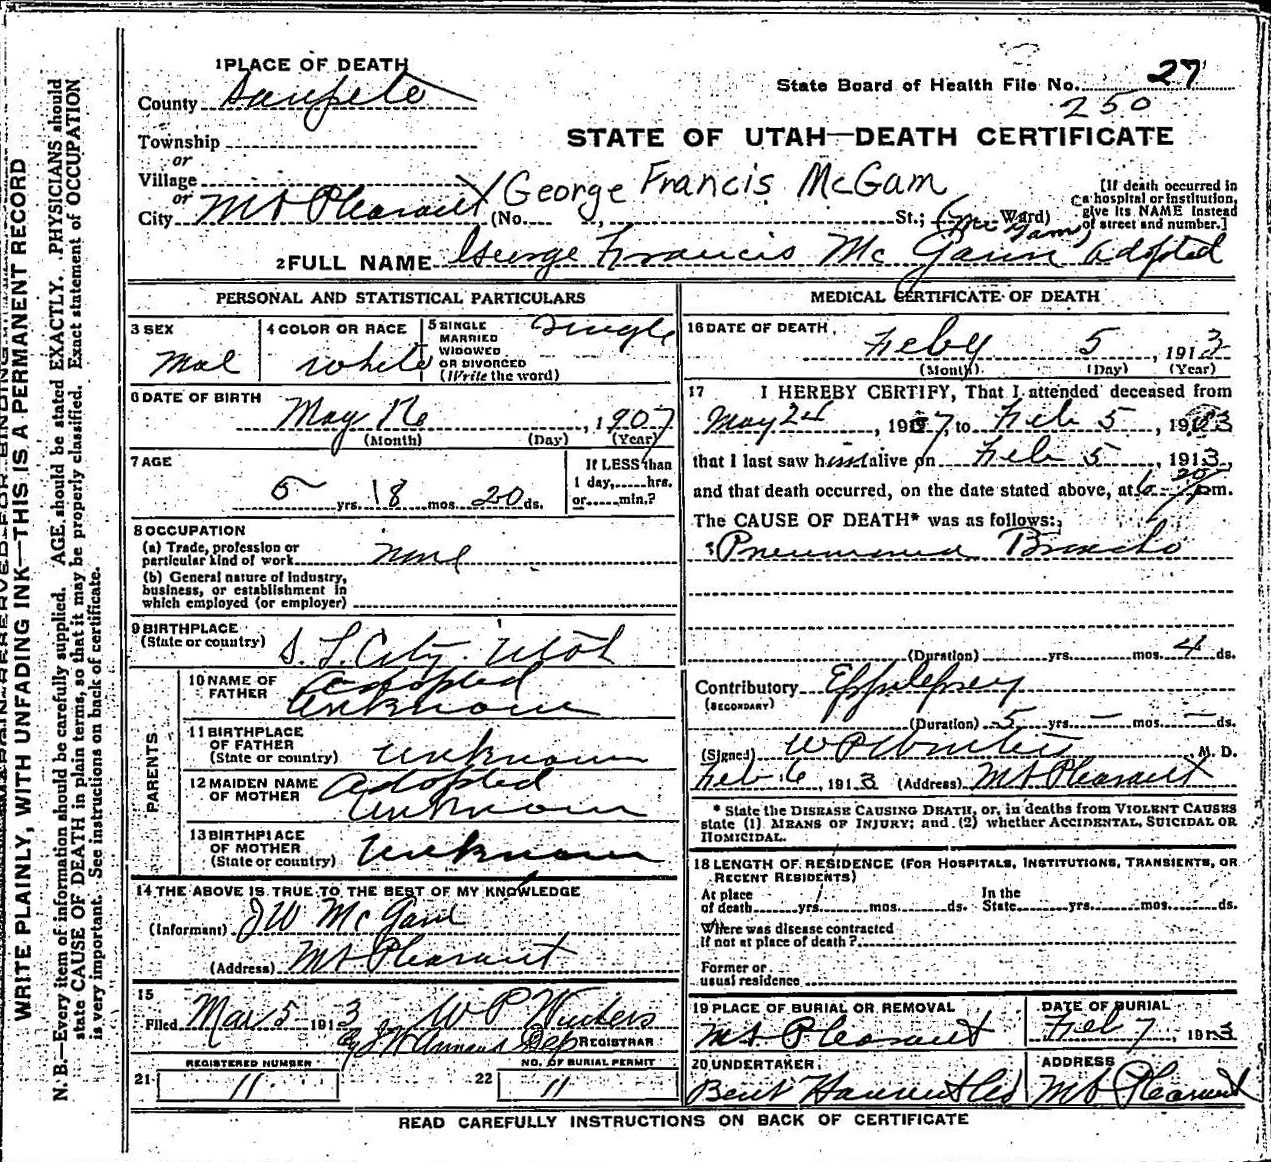 1 PLACE OF DEATH
County Sanpete
State Board of Health File No. 27
250
Township
or
Village
or
City Mt Pleasant
STATE OF UTAH—DEATH CERTIFICATE
George Francis McGam
(No. , St.; Ward)
[If death occurred in
a hospital or institution,
give its NAME instead
of street and number.]
2 FULL NAME George Francis Mc Gann Adopted
PERSONAL AND STATISTICAL PARTICULARS
3 SEX
Mal
4 COLOR OR RACE
White
5 SINGLE
MARRIED
WIDOWED
OR DIVORCED
(Write the word)
Single
6 DATE OF BIRTH
May 16, 1907
(Month) (Day) (Year)
7 AGE
5 yrs. 8 mos. 20 ds.
If LESS than
1 day, hrs.
or min.?
8 OCCUPATION
(a) Trade, profession or
particular kind of work none
(b) General nature of industry,
business, or establishment in
which employed (or employer)
9 BIRTHPLACE
(State or country) S. L. City Utah
PARENTS
10 NAME OF
FATHER
Adopted
Unknown
11 BIRTHPLACE
OF FATHER
(State or country) Unknown
12 MAIDEN NAME
OF MOTHER
Adopted
Unknown
13 BIRTHPLACE
OF MOTHER
(State or country) Unknown
14 THE ABOVE IS TRUE TO THE BEST OF MY KNOWLEDGE
(Informant) J W McGann
(Address) Mt Pleasant
15
Filed Mar 5 1913 W P Winters
REGISTRAR
REGISTERED NUMBER
21 11
NO. OF BURIAL PERMIT
22 11
MEDICAL CERTIFICATE OF DEATH
16 DATE OF DEATH
Feby 5, 1913
(Month) (Day) (Year)
17 I HEREBY CERTIFY, That I attended deceased from
May 24, 1907, to Feb 5, 1913
that I last saw him alive on Feb 5, 1913,
and that death occurred, on the date stated above, at 6 pm.
The CAUSE OF DEATH* was as follows:
Pneumonia Broncho
(Duration) yrs. mos. 4 ds.
Contributory Eppilepsey
(SECONDARY)
(Duration) 5 yrs. — mos. — ds.
(Signed) W P Winters, M. D.
Feb 6, 1913 (Address) Mt Pleasant
* State the DISEASE CAUSING DEATH, or, in deaths from VIOLENT CAUSES
state (1) MEANS OF INJURY; and (2) whether ACCIDENTAL, SUICIDAL OR
HOMICIDAL.
18 LENGTH OF RESIDENCE (FOR HOSPITALS, INSTITUTIONS, TRANSIENTS, OR
RECENT RESIDENTS)
At place
of death yrs. mos. ds.
In the
State yrs. mos. ds.
Where was disease contracted
if not at place of death?
Former or
usual residence
19 PLACE OF BURIAL OR REMOVAL
Mt Pleasant
DATE OF BURIAL
Feb 7, 1913
20 UNDERTAKER
Bent
ADDRESS
Mt Pleasant
READ CAREFULLY INSTRUCTIONS ON BACK OF CERTIFICATE
WRITE PLAINLY, WITH UNFADING INK—THIS IS A PERMANENT RECORD
N. B.—Every item of information should be carefully supplied. AGE should be stated EXACTLY. PHYSICIANS should
state CAUSE OF DEATH in plain terms, so that it may be properly classified. Exact statement of OCCUPATION
is very important. See instructions on back of certificate.